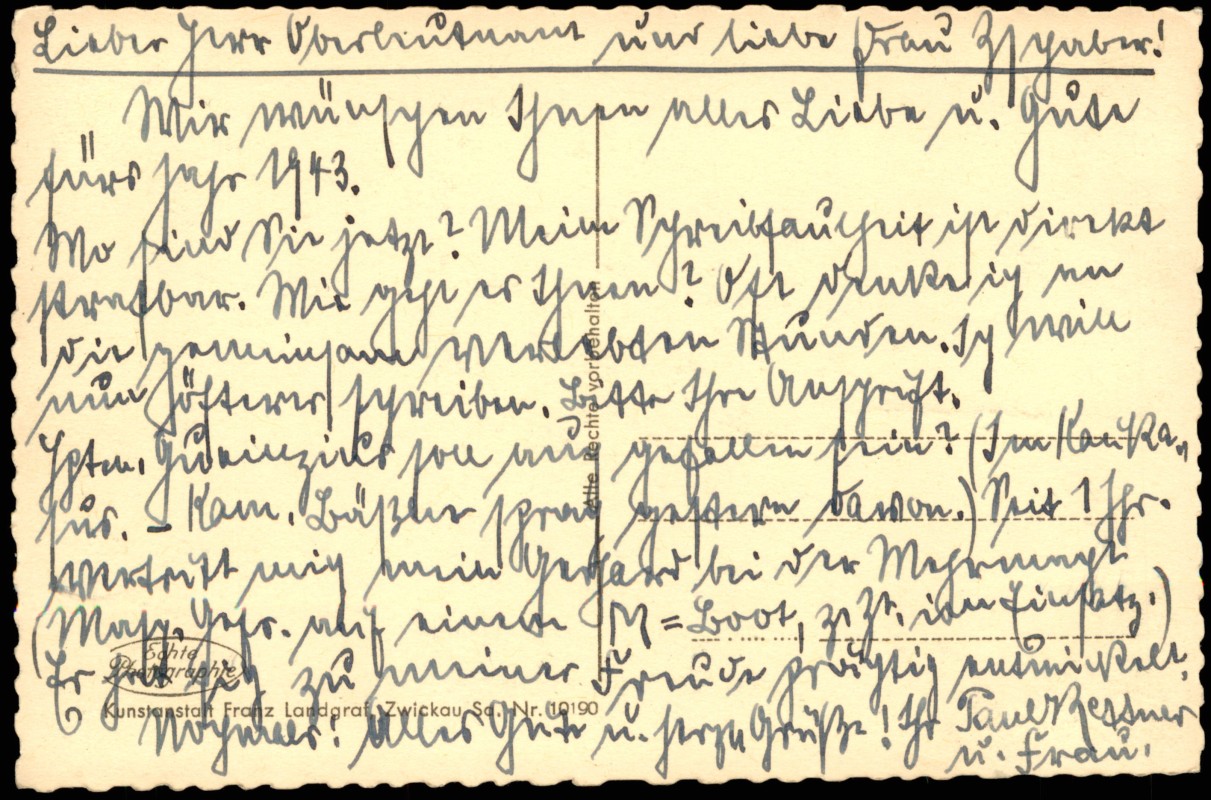 Lieber Herr Oberleutnant und liebe Frau Zschaber!
Wir wünschen Ihnen alles Liebe u. Gute
fürs Jahr 1943.
Wo sind Sie jetzt? Meine Schreibfaulheit ist direkt
strafbar. Wie geht es Ihnen? Oft denke ich an
die gemeinsam verlebten Stunden. Ich will
nun öfterer schreiben. Bitte Ihre Anschrift.
Hptm. soll auch gefallen sein? (Im Kauka-
sus. – Kam. Bäßler sprach gestern davon.) Seit 1 Jhr.
vertritt mich mein Gerhard bei der Wehrmacht
(Masch. Gefr. auf einem M=Boot, z. Zt. im Einsatz.)
Er hat sich zu meiner Freude prächtig entwickelt.
Nochmals! Alles Gute u. herzl. Grüße! Ihr Paul
u. Frau.
Alle Rechte vorbehalten
Echte
Photographie
Kunstanstalt Franz Landgraf, Zwickau Sa. Nr. 10190